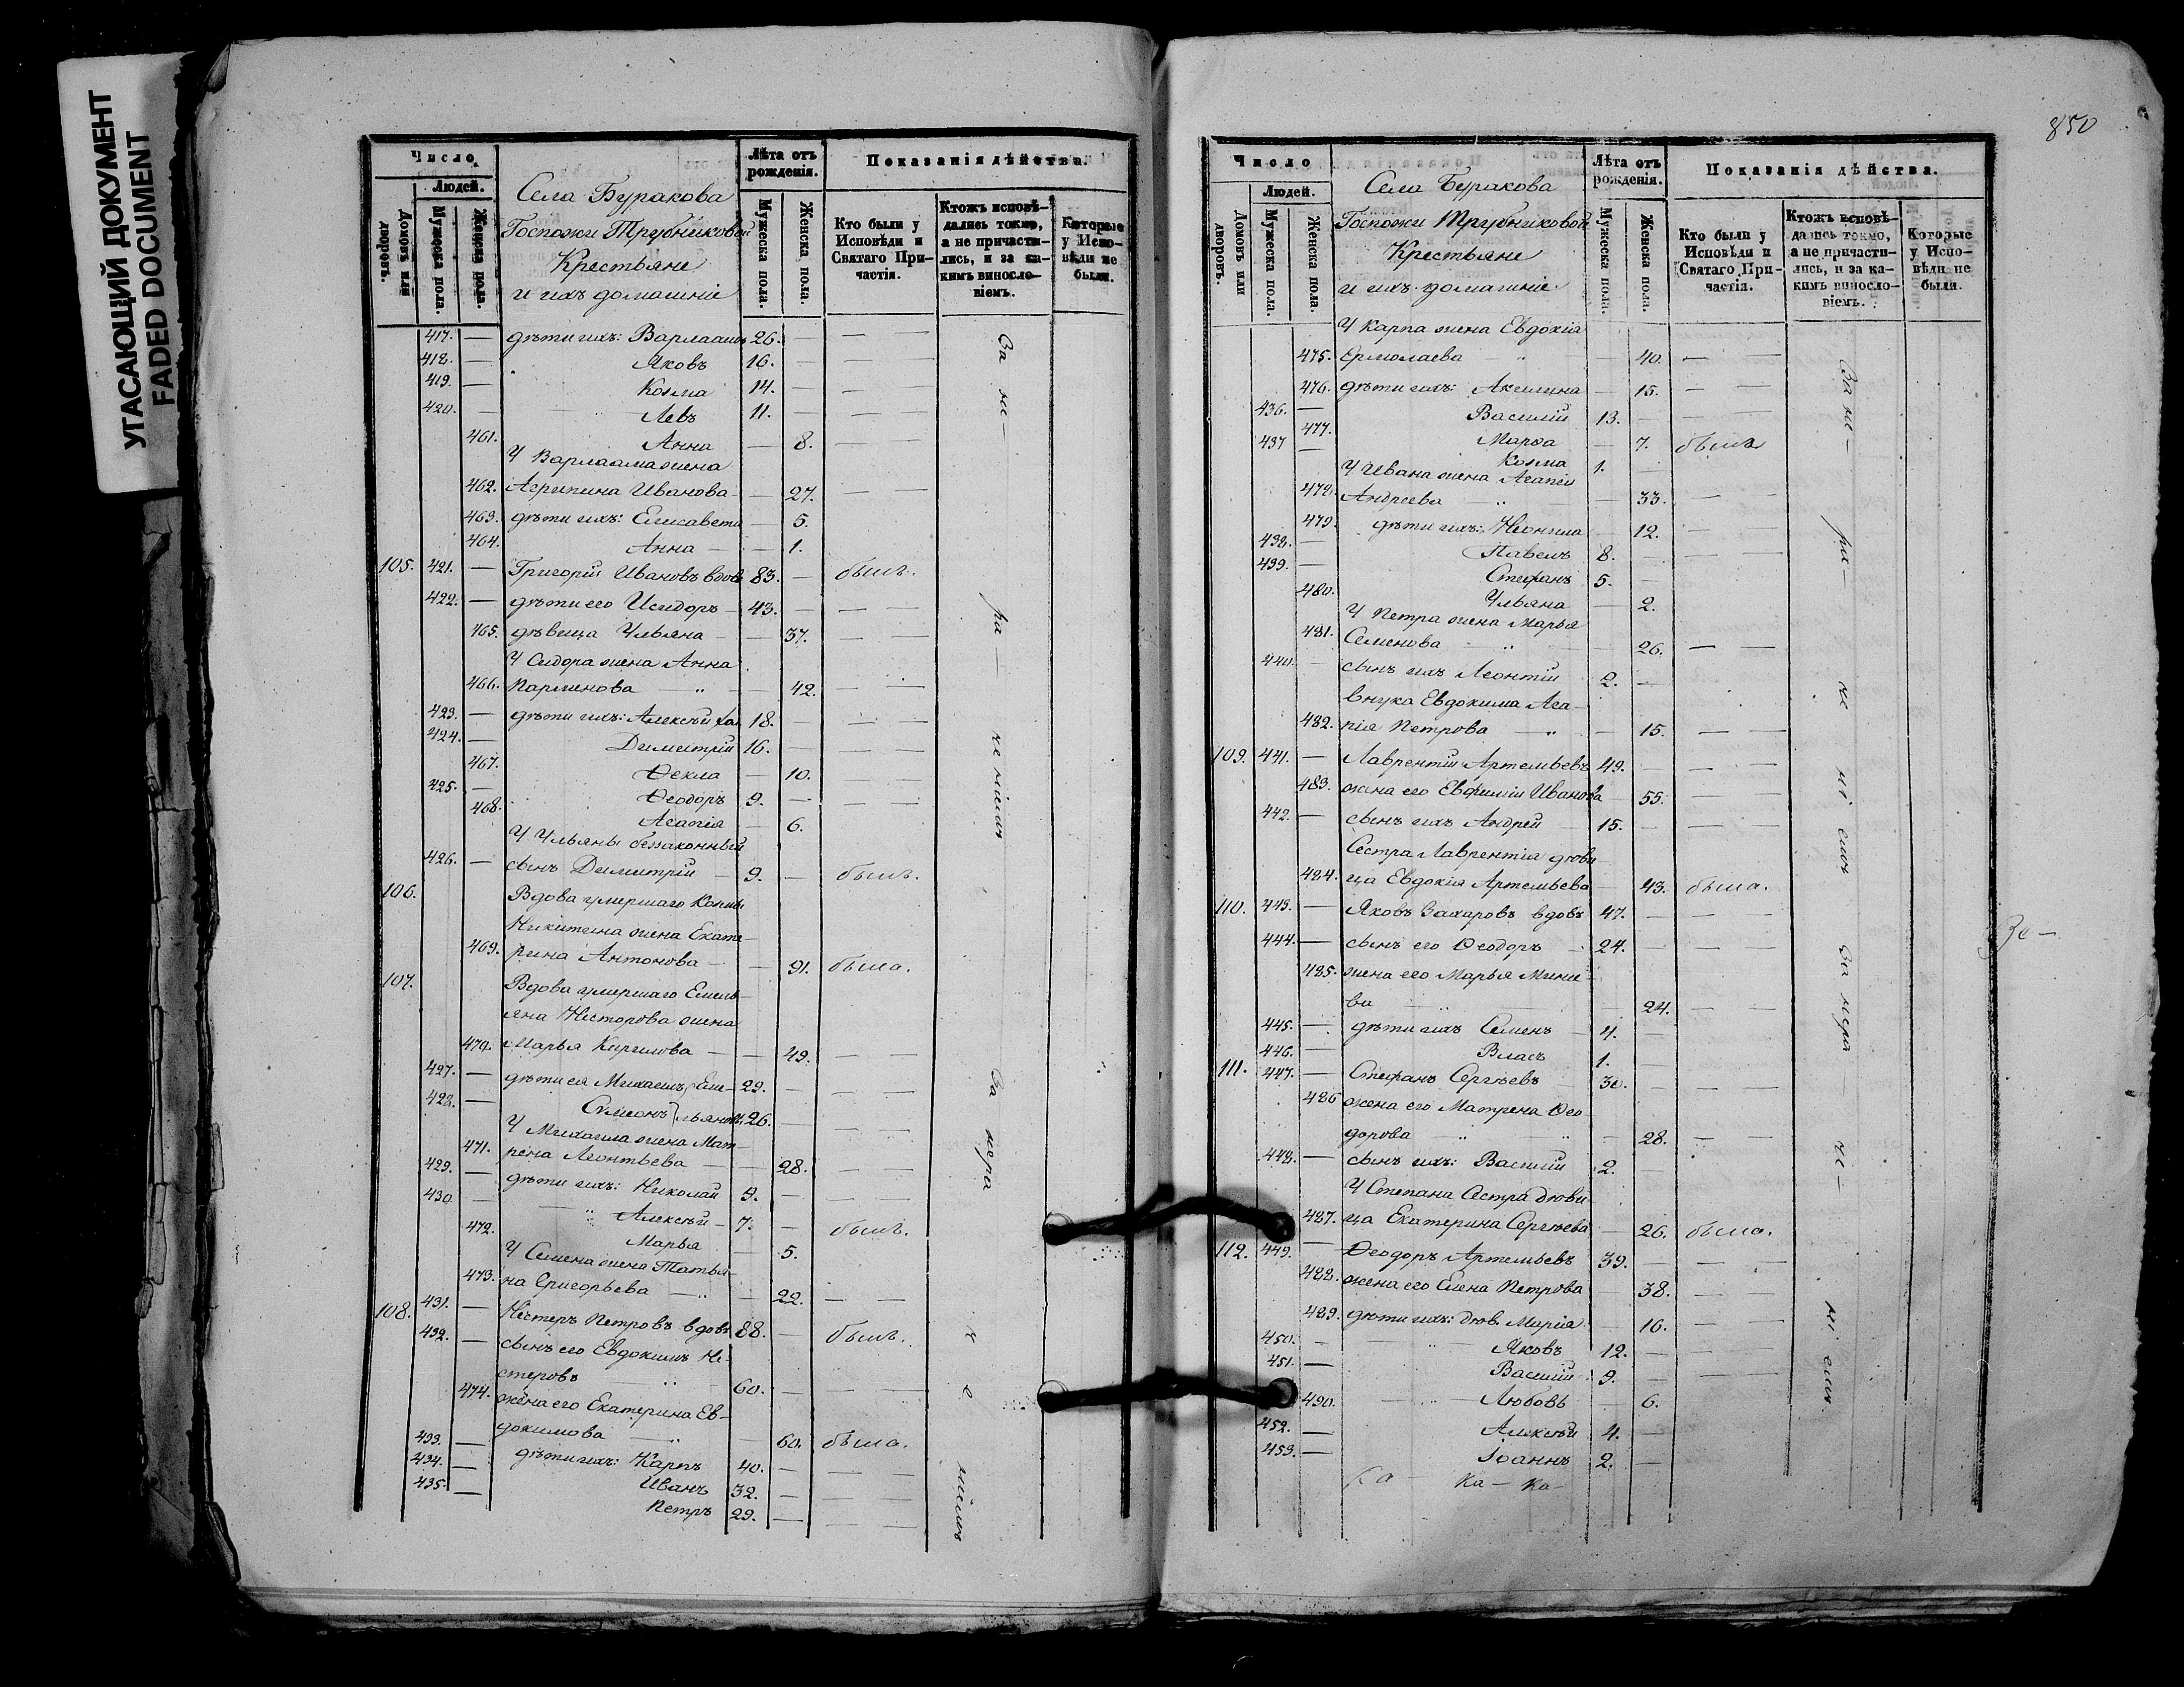 УГАСАЮЩИЙ ДОКУМЕНТ
FADED DOCUMENT
Число
Людей.
Домовъ или дворовъ.
Мужеска пола.
Женска пола.
Села Буракова
Госпожи Трубниковой
Крестьяне
и ихъ домашніе
Лѣта отъ рожденія.
Мужеска пола.
Женска пола.
Показанія дѣйства.
Кто были у Исповѣди и Святаго Причастія.
Ктожъ исповѣдались токмо, а не причастились, и за какимъ винословіемъ.
Которые у Исповѣди не были.
417. — дѣти ихъ: Варлаамъ 26. —
418. — Яковъ 16. —
419. — Козма 14. —
420. — Левъ 11. —
461. Анна — 8.
У Варлаама жена
462. Агрипина Иванова — 27.
463. дѣти ихъ: Елисавета — 5.
464. Анна — 1.
105. 421. — Григорій Ивановъ вдов 83. — былъ.
422. — дѣти его Исидоръ — 43. —
465. дѣвица Ульяна — 37.
У Сидора жена Анна
466. Парменова — „ — 42.
423. — дѣти ихъ: Алексѣй хол 18. —
424. — Димитрій 16. —
467. Ѳекла — 10.
425. — Ѳеодоръ 9. —
468. Агапія — 6.
У Ульяны беззаконный
426. — сынъ Димитрій — 9. — былъ.
106. Вдова умершаго Козмы
Никитина жена Екате-
469. рина Антонова — 91. была.
107. Вдова умершаго Емель-
яна Нисторова жена
470. Марья Кирилова — 49.
427. — дѣти ея Михаилъ Еме- 29. —
428. — Симеонъ льяновы 26. —
У Михаила жена Мат-
471. рена Леонтьева — 28.
429. — дѣти ихъ: Николай 9. —
430. — „ Алексѣй — 7. — былъ.
472. Марья — 5.
У Семена жена Татья-
473. на Григорьева — „ — 22.
108. 431. — Нестеръ Петровъ вдовъ 88. — былъ.
432. — сынъ его Евдокимъ Не-
стеровъ „ 60. —
474. жена его Екатерина Ев-
докимова — „ — 60. была.
433. — дѣти ихъ: Карпъ 40. —
434. — Иванъ 32. —
435. — Петръ 29. —
850
Число
Людей.
Домовъ или дворовъ.
Мужеска пола.
Женска пола.
Села Буракова
Госпожи Трубниковой
Крестьяне
и ихъ домашніе
Лѣта отъ рожденія.
Мужеска пола.
Женска пола.
Показанія дѣйства.
Кто были у Исповѣди и Святаго Причастія.
Ктожъ исповѣдались токмо, а не причастились, и за какимъ винословіемъ.
Которые у Исповѣди не были.
У Карпа жена Евдокія
475. Ермолаева — „ — 40. —
476. дѣти ихъ: Акилина — 15. —
436. — Василій 13. —
477. Марѳа — 7. была
437 — Козма 1. —
У Ивана жена Агапія
478. Андреева „ — 33. —
479. дѣти ихъ: Неонила — 12. —
438. — Павелъ 8. —
439. — Стефанъ 5. —
480. Ульяна — 2.
У Петра жена Марья
481. Семенова „ — 26. —
440. — сынъ ихъ Леонтій 2. —
внука Евдокима Ага-
482. пія Петрова — „ — 15.
109. 441. — Лаврентій Артемьевъ 49. —
483. жена его Евфимія Иванова 55.
442. — сынъ ихъ Андрей 15. —
Сестра Лаврентія дѣви
484. ца Евдокія Артемьева — 43. была.
110. 443. — Яковъ Захаровъ вдовъ 47. —
444. — сынъ его Ѳеодоръ — 24. —
485. жена его Марья Мине-
ва — 24.
445. — дѣти ихъ Семенъ 4. —
446. — Власъ 1. —
111. 447. — Стефанъ Сергѣевъ 30. —
486 жена его Матрена Ѳео
дорова „ „ — 28. —
448. — сынъ ихъ: Василій 2. —
У Степана сестра дѣви
487. ца Екатерина Сергѣева — 26. была.
112. 449. — Ѳеодоръ Артемьевъ 39. —
488. жена его Елена Петрова — 38. —
489. дѣти ихъ: дѣв. Марія — 16. —
450. — Яковъ 12. —
451. — Василій 9. —
490. — Любовь — 6. —
452. — Алексѣй 4. —
453. — Іоаннъ 2. —